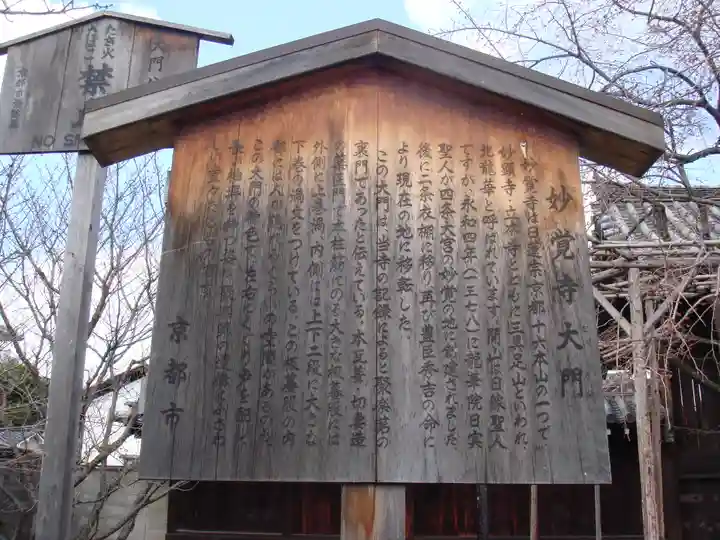 妙覚寺大門
妙覚寺は日蓮宗京都十六本山の一つで、
妙顕寺・立本寺とともに三具足山といわれ、
北龍華と呼ばれています。開山は日像聖人
ですが、永和四年(一三七八)に龍華院日実
聖人が四条大宮の妙覚の地に創建されました。
後に二条衣棚に移り、再び豊臣秀吉の命に
より現在の地に移転した。
この大門は、当寺の記録によると聚楽第の
裏門であったと伝えている。本瓦葺、切妻造
の薬医門で本柱筋にのる大きな板蟇股には
外側に上巻渦、内側には上下二段に大きな
下巻の渦文をつけている。この板蟇股の内
部には人が
この大門の特色で、左右にくぐり戸を配し、
京都市
大門
たき火
たばこ
禁
NO S